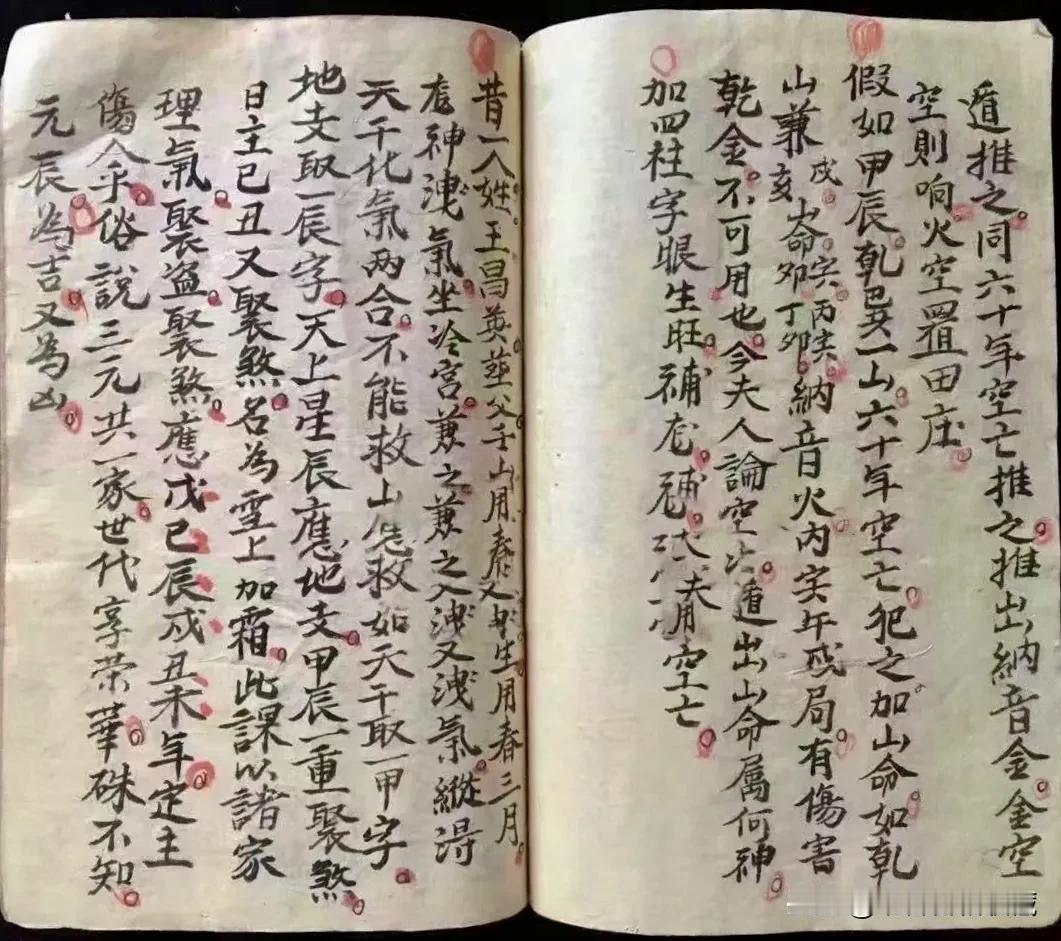 遁推之同六十年空亡推之推出納音金金空
空則响火空置田庄
假如甲辰乾巽一山六十年空亡犯之加山命如乾
山兼戌亥 命 丙 卯丁卯納音火內 午 局有傷害
乾金不可用也今夫人論空 遁出山命屬何神
加四柱字眼生旺補 補 夫用空亡
昔一人姓王昌英葬父壬山用春 生用春三月
神洩氣坐冷宮兼之兼之入洩又洩氣縱得
天干化氣两合不能救山 救如天干取一甲字
地支取一辰字天上星辰應地支甲辰一重聚煞
日主己丑又聚煞名為雪上加霜此課以諸家
理氣聚盗聚煞應戊己辰戌丑未年定主
傷人乎俗說三元共一家世代享荣華硃不知
元辰為吉又為凶